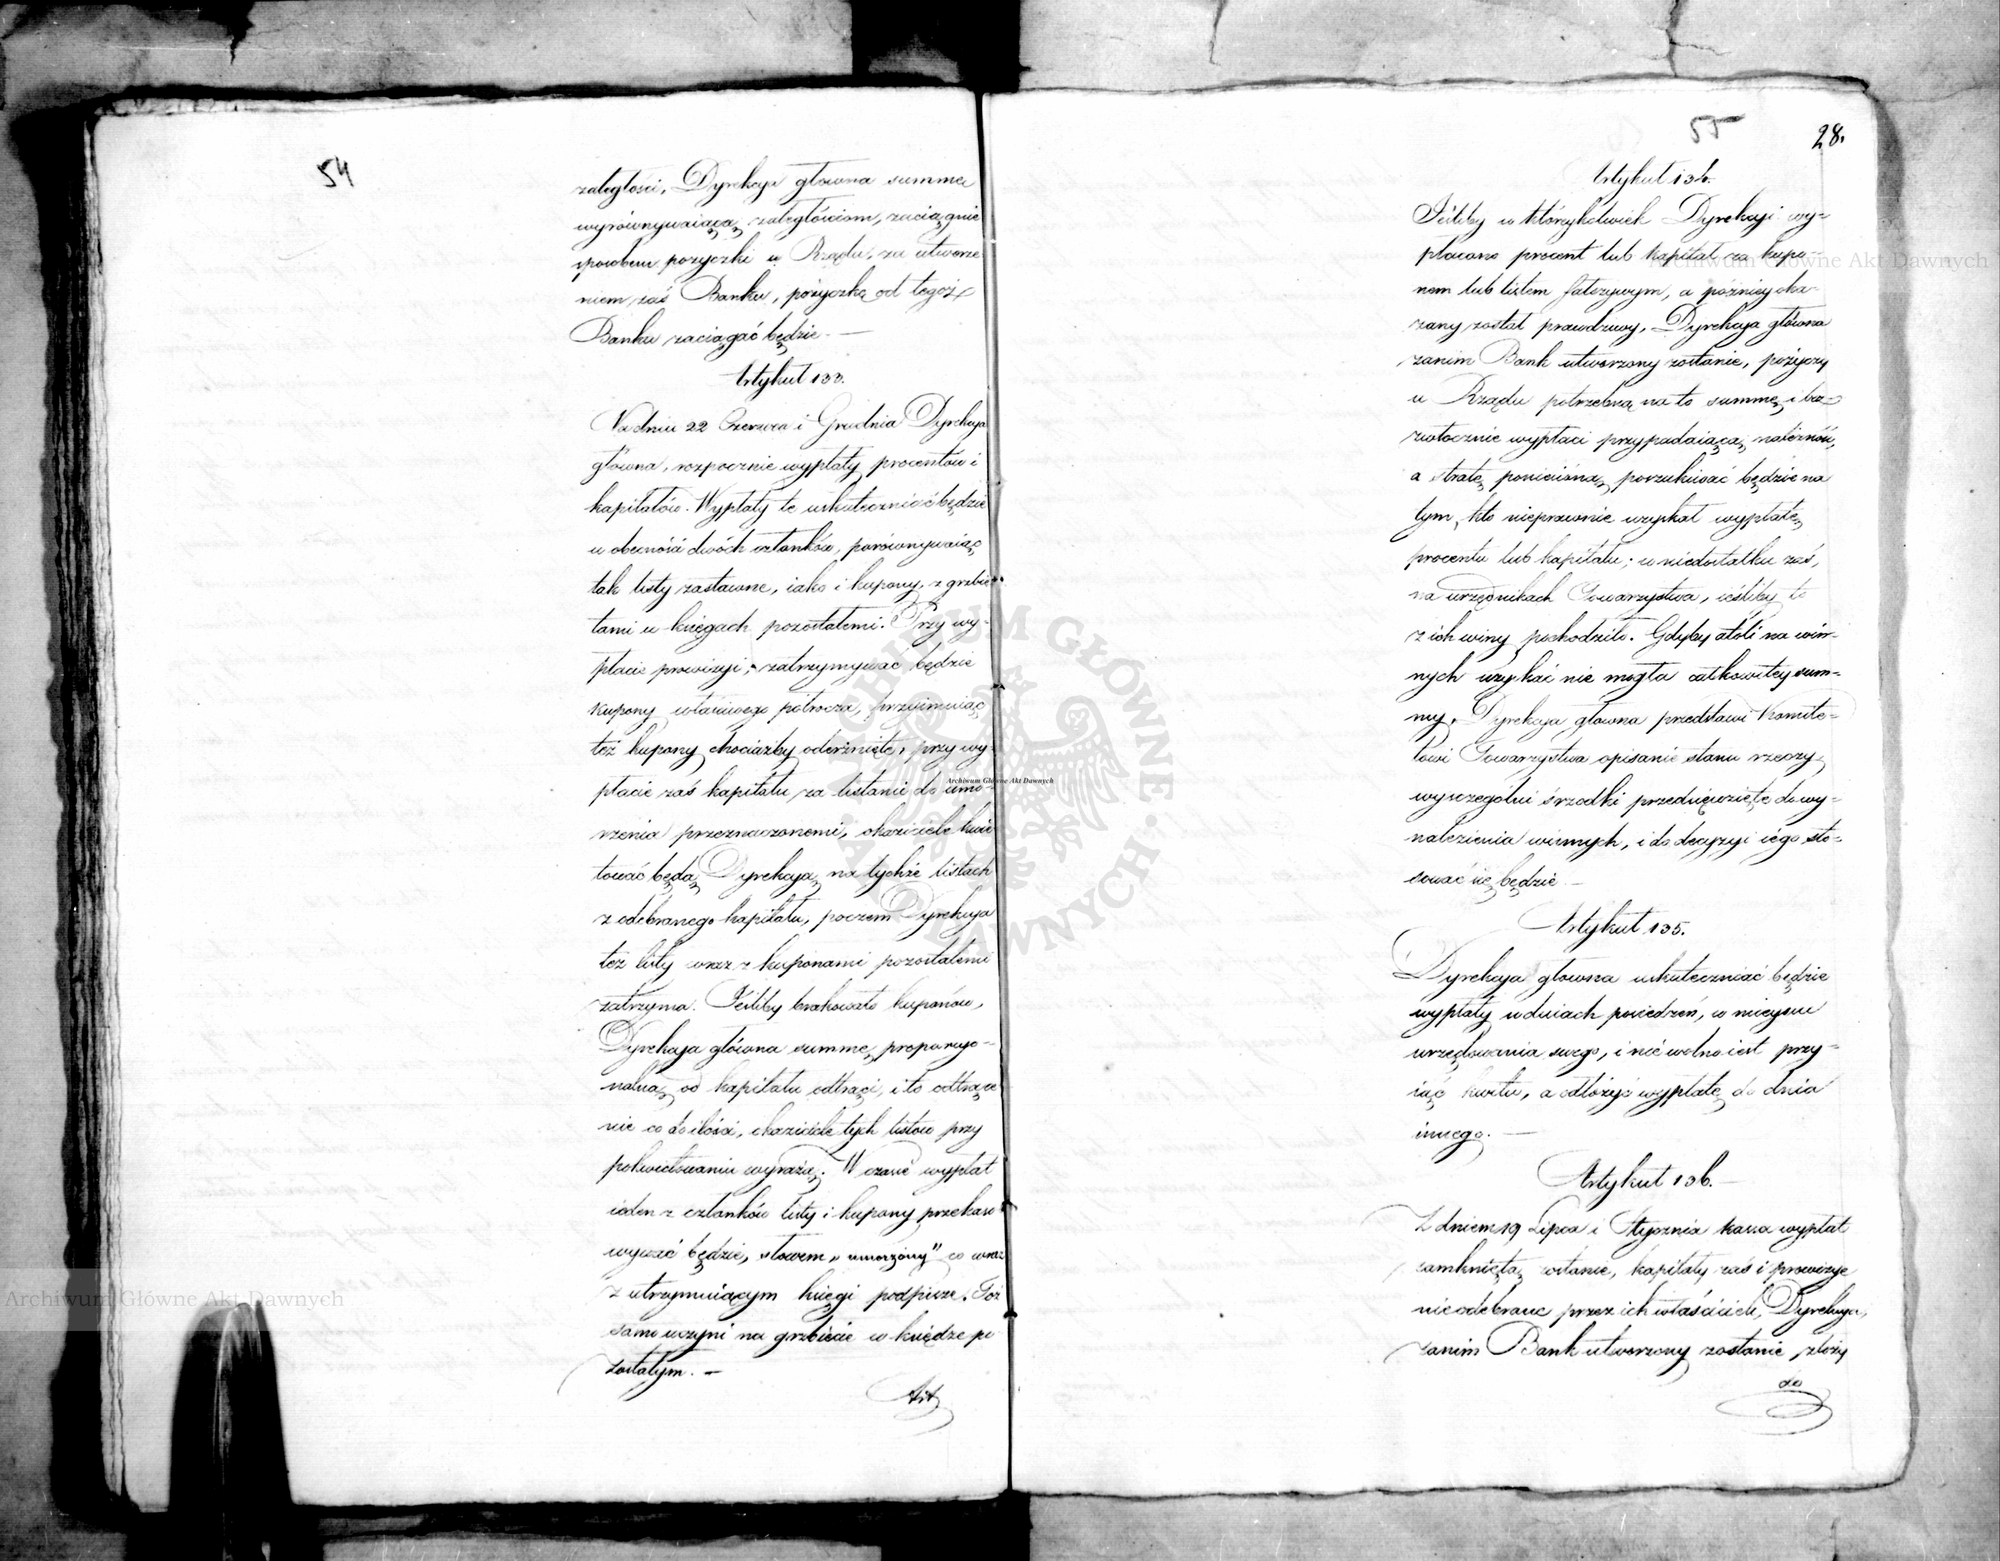 54
zaległości, Dyrekcya główna summę
wyrównywaiącą zaległościom, zaciągnie
sposobem pożyczki u Rządu, za utworze
niem zaś Banku, pożyczkę od tegoż
Banku zaciągać będzie. —
Artykuł 133.
Na dniu 22 Czerwca i Grudnia Dyrekcya
główna, rozpocznie wypłaty procentów i
kapitałów. Wypłaty te uskuteczniać będzie
w obecności dwóch członków, porównywaiąc
tak listy zastawne, iako i kupony z grzbie
tami w księgach pozostałemi. Przy wy-
płacie prowizyi, zatrzymywać będzie
kupony właściwego półrocza, przyimuiąc
też kupony chociażby oderżnięte, przy wy-
płacie zaś kapitału za listami do umo-
rzenia przeznaczonemi, okaziciele kwi
tować będą Dyrekcyą na tychże listach
z odebranego kapitału, poczem Dyrekcya
też listy wraz z kuponami pozostałemi
zatrzyma. Jeśliby brakowało kuponów,
Dyrekcya główna summę proporcyo-
nalną od kapitału odtrąci, i to odtrące
nie co do ilości, okaziciele tych listów przy
pokwitowaniu wyrażą. W czasie wypłat
ieden z członków listy i kupony przekaso
wywać będzie, słowem „umorzony" co wraz
z utrzymuiącym księgi podpisze. Toż
samo uczyni na grzbiecie w księdze po
zostałym. —
Art
55
28.
Artykuł 134.
Jeśliby w któreykolwiek Dyrekcyi wy-
płacono procent lub kapitał za kupo-
nem lub listem fałszywym, a późniey oka-
zany został prawdziwy, Dyrekcya główna
zanim Bank utworzony zostanie, pożyczy
u Rządu potrzebną na to summę i bez-
zwłocznie wypłaci przypadaiącą należność,
a stratę poniesioną, poszukiwać będzie na
tym, kto nieprawnie uzyskał wypłatę
procentu lub kapitału; w niedostatku zaś,
na urzędnikach Towarzystwa, ieśliby to
z ich winy pochodziło. Gdyby atoli na win-
nych uzyskać nie mogła całkowitey sum-
my, Dyrekcya główna przedstawi Komite-
towi Towarzystwa opisanie stanu rzeczy,
wyszczególni śrzodki przedsięwzięte do wy-
nalezienia winnych, i do decyzyi iego sto-
sować się będzie. —
Artykuł 135.
Dyrekcya główna uskuteczniać będzie
wypłaty w dniach posiedzeń, w mieyscu
urzędowania swego, i nie wolno iest przy-
iąć kwitu, a odłożyć wypłatę do dnia
innego. —
Artykuł 136. —
Z dniem 19 Lipca i Stycznia kassa wypłat
zamkniętą zostanie, kapitały zaś i prowizye
nieodebrane przez ich właścicieli, Dyrekcya,
zanim Bank utworzony zostanie, złoży
do
Archiwum Główne Akt Dawnych
Archiwum Główne Akt Dawnych
Archiwum Główne Akt Dawnych
ARCHIWUM GŁÓWNE AKT DAWNYCH